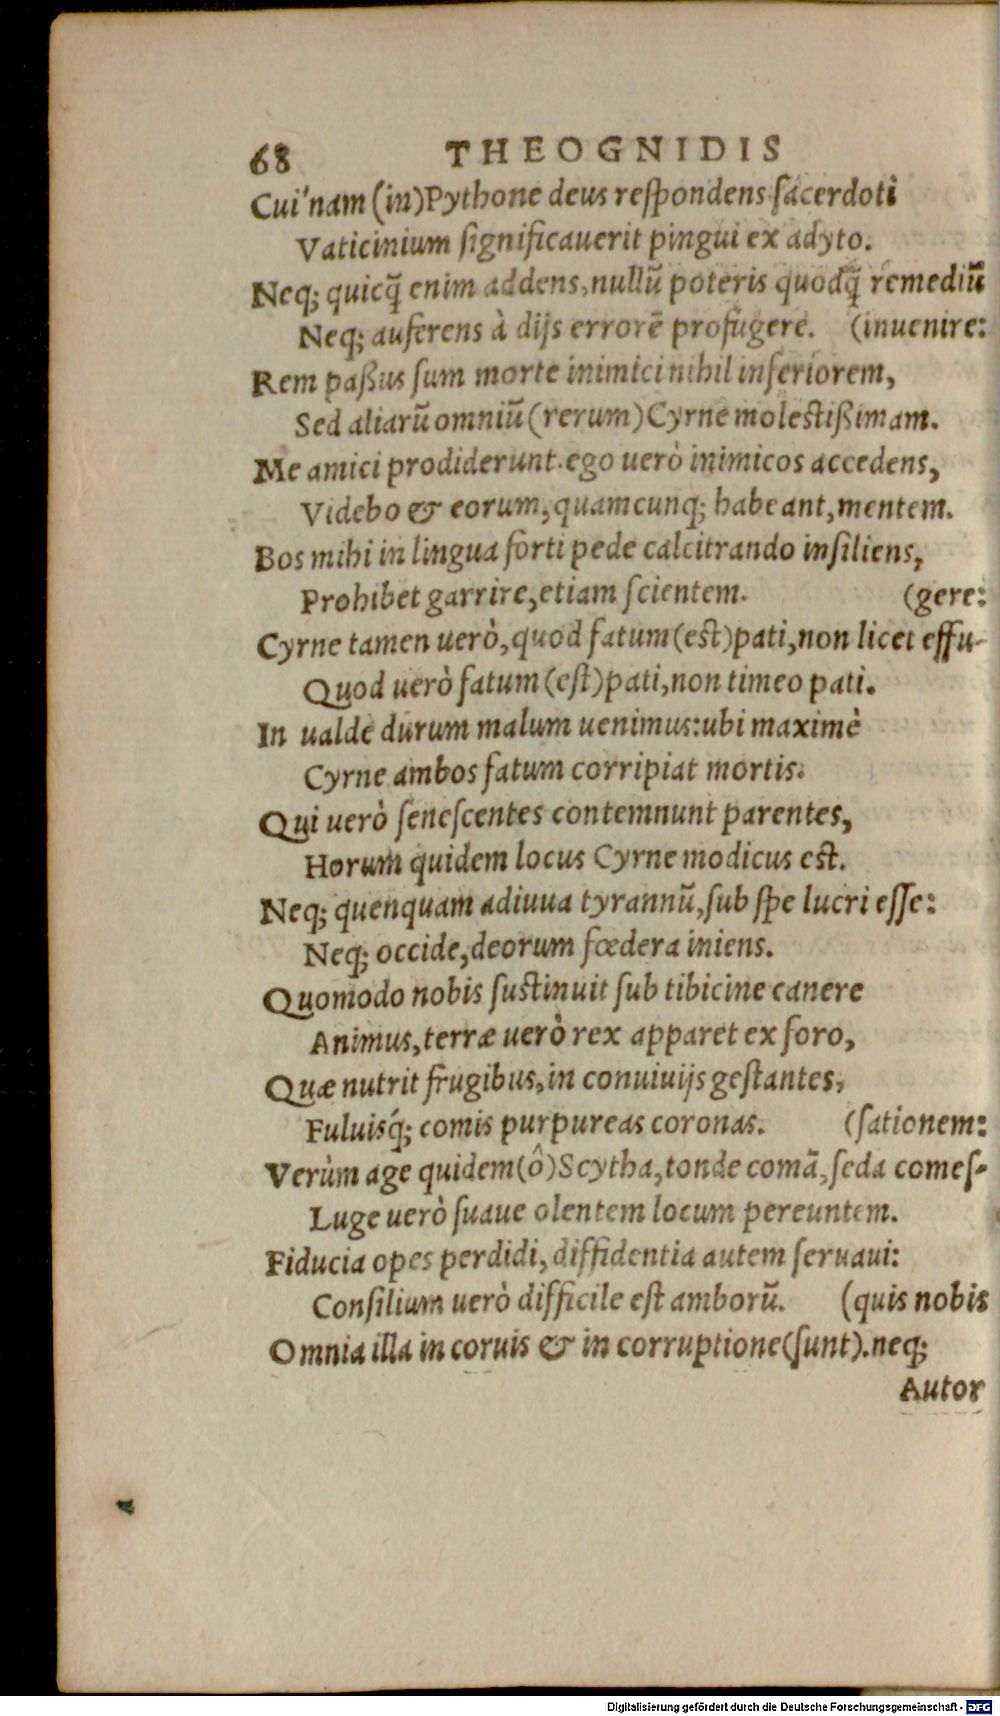 68 THEOGNIDIS
Cui'nam (in)Pythone deus respondens sacerdoti
Vaticinium significauerit pingui ex adyto.
Neq; quicq̃ enim addens, nullũ poteris quodq̃ remediũ
Neq; auferens à dijs errorẽ profugere. (inuenire:
Rem paßus sum morte inimici nihil inferiorem,
Sed aliarũ omniũ (rerum) Cyrne molestißimam.
Me amici prodiderunt. ego uerò inimicos accedens,
Videbo & eorum, quamcunq; habeant, mentem.
Bos mihi in lingua forti pede calcitrando insiliens,
Prohibet garrire, etiam scientem. (gere:
Cyrne tamen uerò, quod fatum (est) pati, non licet effu-
Quod uerò fatum (est) pati, non timeo pati.
In ualde durum malum uenimus: ubi maximè
Cyrne ambos fatum corripiat mortis.
Qui uerò senescentes contemnunt parentes,
Horum quidem locus Cyrne modicus est.
Neq; quenquam adiuua tyrannũ, sub spe lucri esse:
Neq; occide, deorum fœdera iniens.
Quomodo nobis sustinuit sub tibicine canere
Animus, terræ uerò rex apparet ex foro,
Quæ nutrit frugibus, in conuiuijs gestantes,
Fuluisq́; comis purpureas coronas. (sationem:
Verùm age quidem (ô) Scytha, tonde comã, seda comes-
Luge uerò suaue olentem locum pereuntem.
Fiducia opes perdidi, diffidentia autem seruaui:
Consilium uerò difficile est amborũ. (quis nobis
Omnia illa in coruis & in corruptione (sunt). neq;
Autor
Digitalisierung gefördert durch die Deutsche Forschungsgemeinschaft - DFG